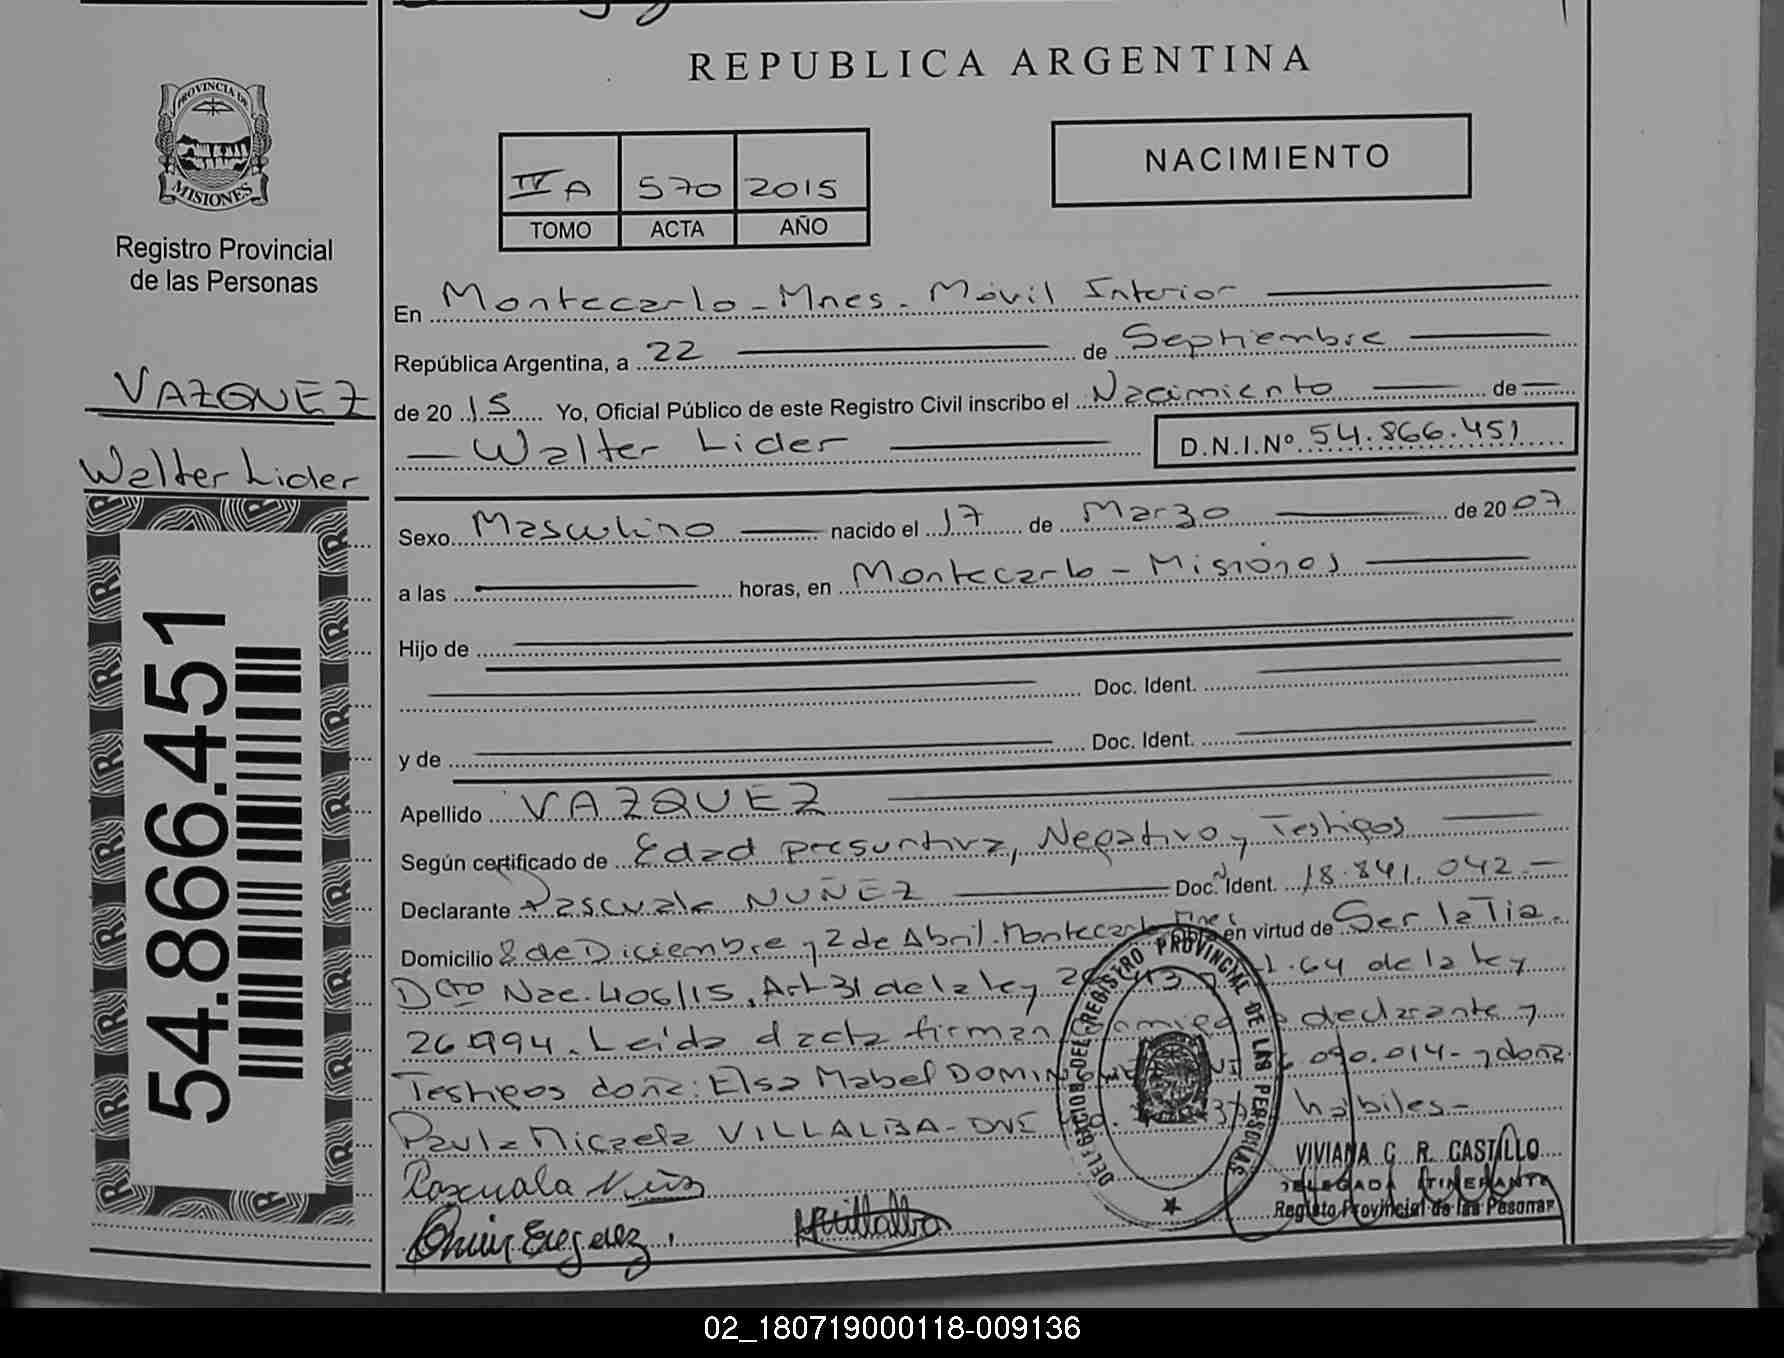 REPUBLICA ARGENTINA
PROVINCIA DE
MISIONES
Registro Provincial
de las Personas
IV A 570 2015
TOMO ACTA AÑO
NACIMIENTO
VAZQUEZ
Walter Lider
54.866.451
En Montecarlo - Mnes. Móvil Interior
República Argentina, a 22 de Septiembre
de 20 15 Yo, Oficial Público de este Registro Civil inscribo el Nacimiento de
Walter Lider D.N.I.Nº 54.866.451
Sexo Masculino nacido el 17 de Marzo de 20 07
a las horas, en Montecarlo - Misiones
Hijo de
Doc. Ident.
y de Doc. Ident.
Apellido VAZQUEZ
Según certificado de Edad presuntiva, Negativo y Testigos
Declarante Pascuala NUÑEZ Doc. Ident. 18.841.042.-
Domicilio 8 de Diciembre y 2 de Abril. Montecarlo Mnes en virtud de Ser la Tia.
Dcto Nac. 406/15, Art 31 de la ley 64 de la ley
26994. Leida el acta firman declarante y
Testigos doña: Elsa Mabel 090.014- y doña
Paula Micaela VILLALBA - DNI habiles-
DELEGACION DEL REGISTRO PROVINCIAL DE LAS PERSONAS
VIVIANA G. R. CASTILLO
DELEGADA ITINERANTE
Registro Provincial de las Personas
Pascuala
Villalba
02_180719000118-009136